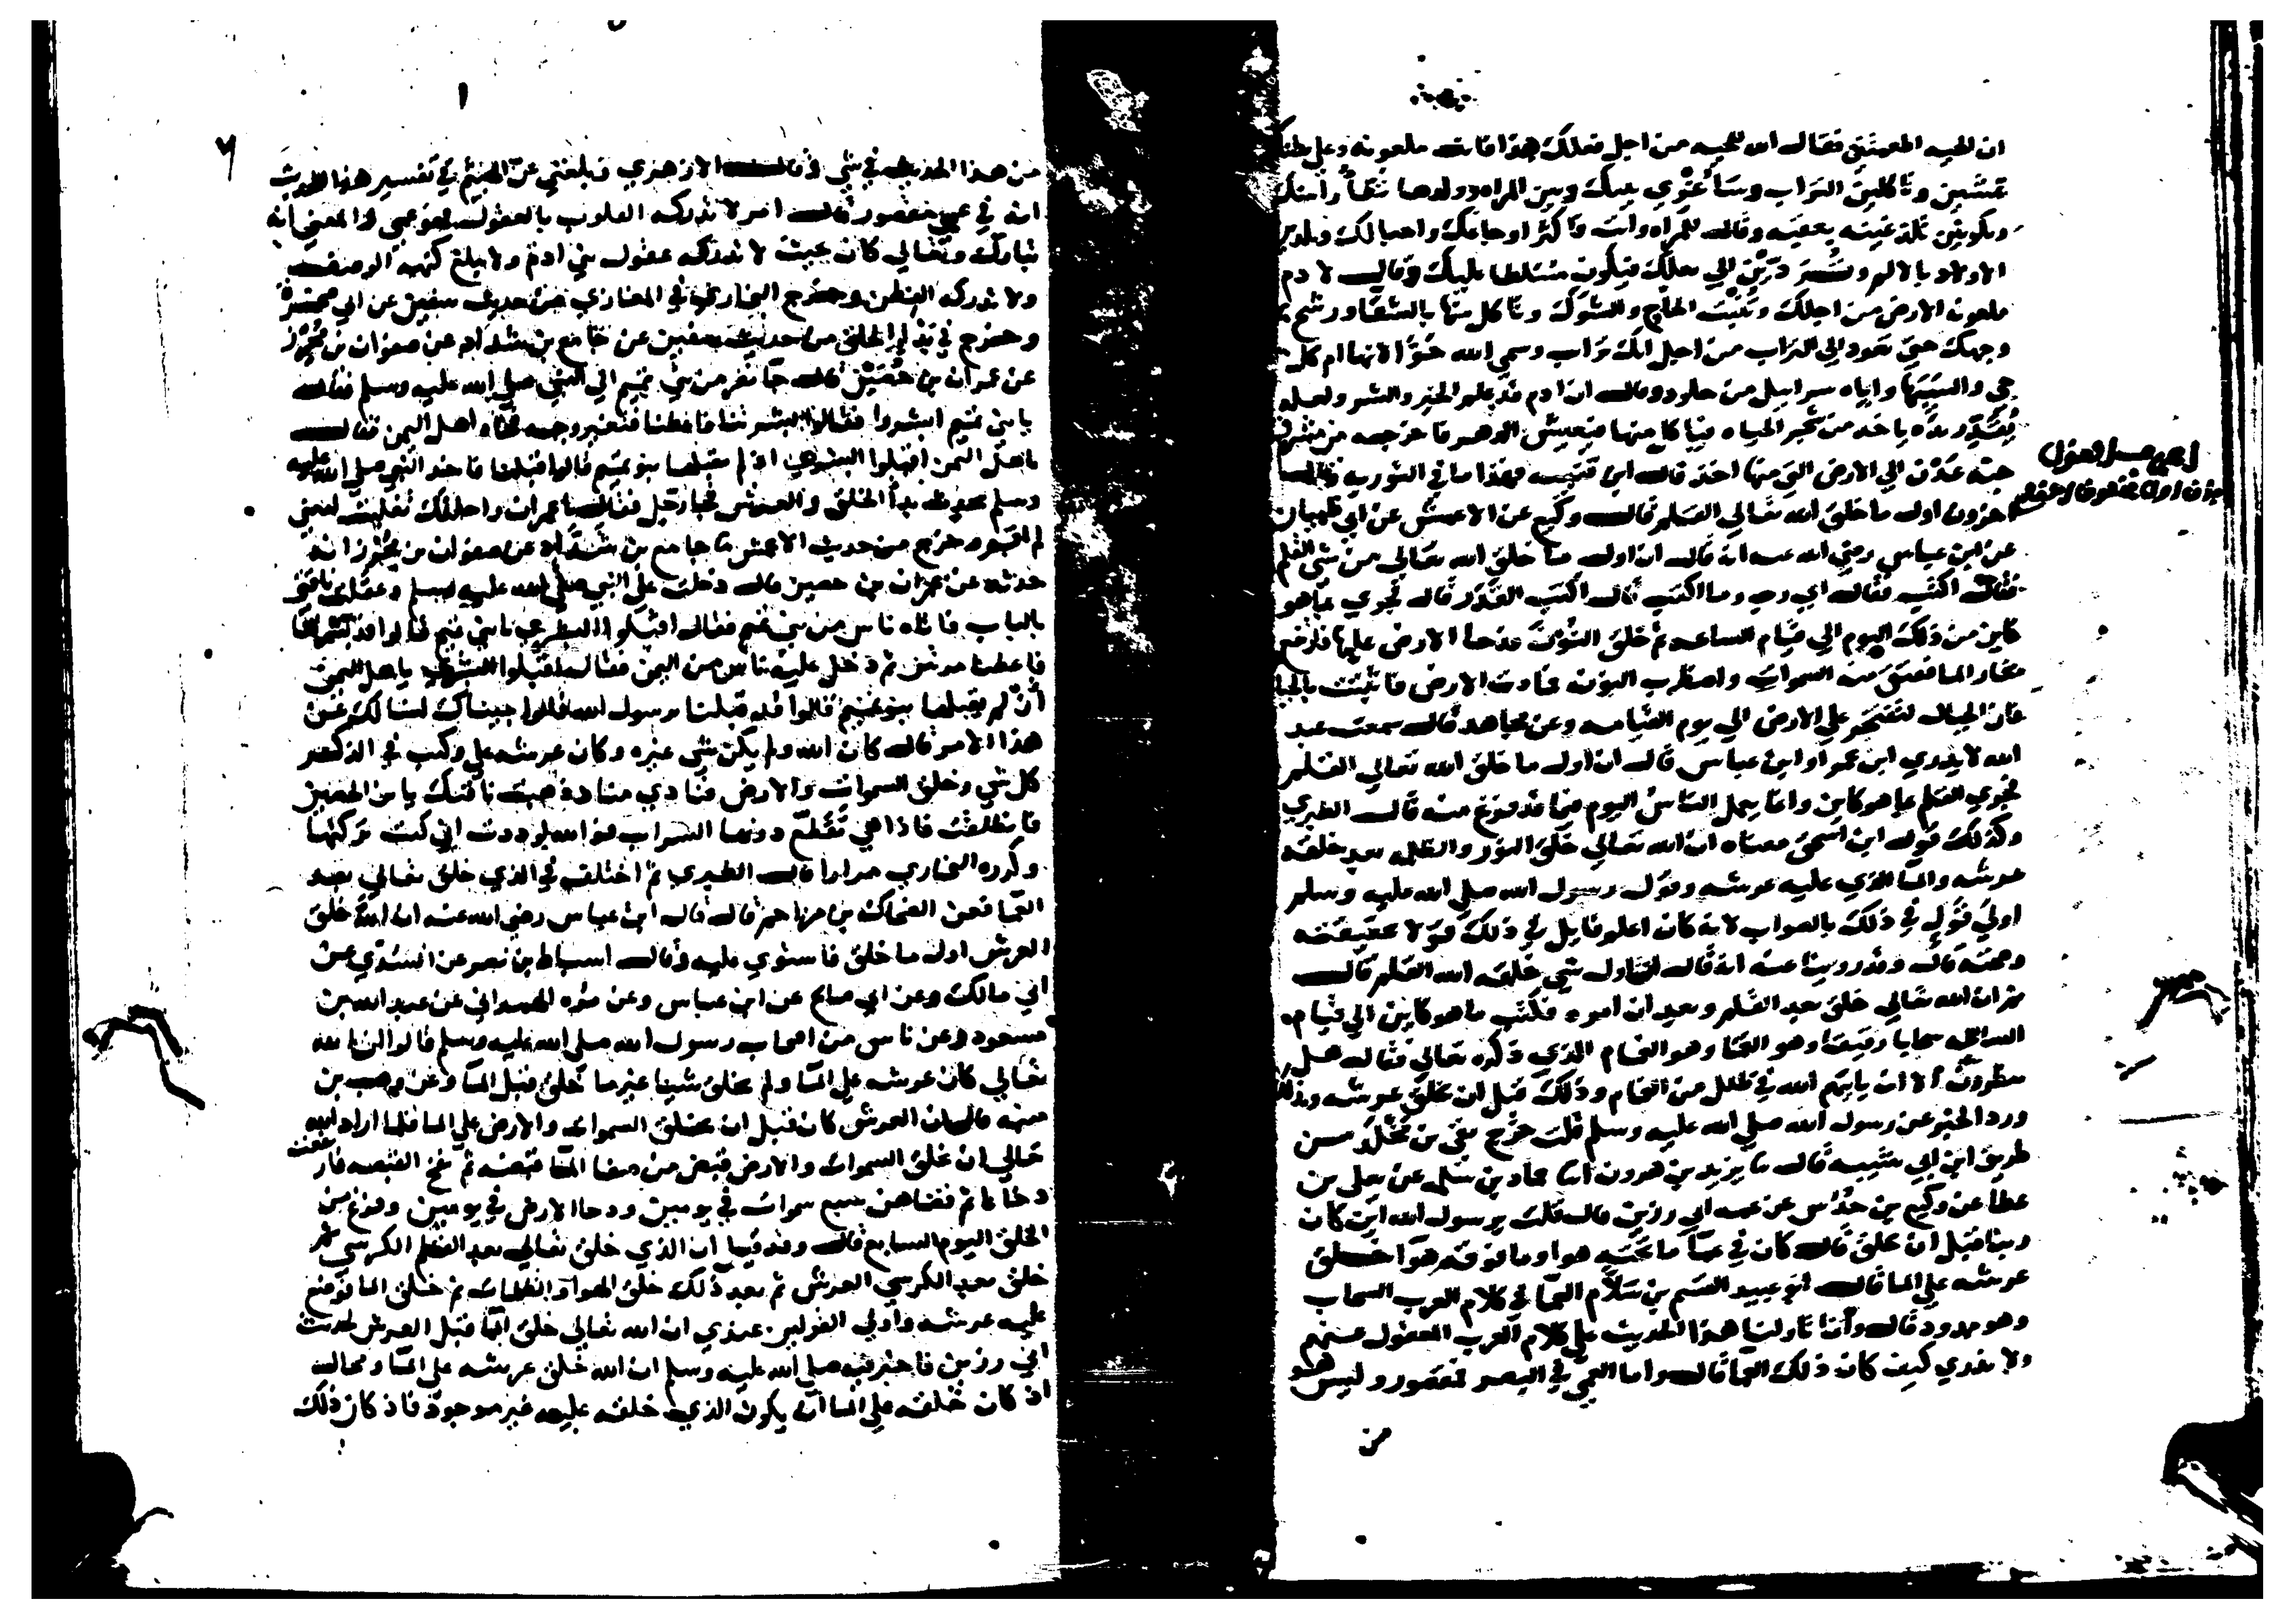 ان الحيه اطعمتني فقال الله للحيه من اجل فعلك هذا فانت ملعونه وعلى بطنك
تمشين وتاكلين التراب وساغري بينك وبين المراه وولدها تطا راسك
وتكونين تلذغينه بعقبه وقال للمراه وانت فاكثر اوجاعك واحبالك وتلدين
الاولاد بالالم وتردين الى بعلك فيكون مسلطا عليك وقال لادم
ملعونه الارض من اجلك وتنبت الحاج والشوك وتاكل منها بالشقا ورشح
وجهك حتى تعود الى التراب من اجل انك تراب وسمى الله حوا لانها ام كل
حي والبسها واياه سرابيل من جلود وقال ان ادم قد علم الخير والشر ولعله
يده ياخذ من شجر الحياه فياكل منها فيعيش الدهر فاخرجه من مشرق
جنه عدن الى الارض التي منها اخذ قال ابن قتيبه فهذا ما في التوريه قال
اخرون اول ما خلق الله تعالى القلم قال وكيع عن الاعمش عن ابي ظبيان
عن ابن عباس رضي الله عنه انه قال ان اول ما خلق الله تعالى من شي القلم
فقال اكتب فقال اي رب وما اكتب قال اكتب القدر قال فجرى بما هو
كاين من ذلك اليوم الى قيام الساعه ثم خلق النون فدحا الارض عليها فارتفع
بخار الما ففتق منه السموات واضطرب النون فمادت الارض فاثبتت بالجبا
فان الجبال لتفتخر على الارض الى يوم القيامه وعن مجاهد قال سمعت عبد
الله لا يدري ابن عمر او ابن عباس قال ان اول ما خلق الله تعالى القلم
فجرى القلم بما هو كاين وانما يعمل الناس اليوم فيما قد فرغ منه قال الطبري
وكذلك قول ابن اسحق معناه ان الله تعالى خلق النور والظلمه بعد خلقه
عرشه والما الذي عليه عرشه وقول رسول الله صلى الله عليه وسلم
اولى قول في ذلك بالصواب لانه كان اعلم قايل في ذلك قولا بحقيقته
وصحته قال وقد روينا عنه انه قال اول شي خلقه الله القلم قال
ثم ان الله تعالى خلق بعد القلم وبعد ان امره فكتب ما هو كاين الى قيام
الساعه سحابا رقيقا وهو العما وهو الغمام الذي ذكره تعالى فقال هل
ينظرون الا ان ياتيهم الله في ظلل من الغمام وذلك قبل ان يخلق عرشه وبذلك
ورد الخبر عن رسول الله صلى الله عليه وسلم قلت خرج بقي بن مخلد من
طريق ابن ابي شيبه قال ثنا يزيد بن هرون انا حماد بن سلمه عن يعلى بن
عطا عن وكيع بن حدس عن عمه ابي رزين قال قلت يرسول الله اين كان
ربنا قبل ان يخلق قال كان في عما ما تحته هوا وما فوقه هوا خلق
عرشه على الما قال ابو عبيد القسم بن سلام العما في كلام العرب السحاب
وهو ممدود قال وانما تاولنا هذا الحديث على كلام العرب المعقول عنهم
ولا يدري كيف كان ذلك العما قال واما العمى في البصر فمقصور وليس هو
من
٦
من هذا الحديث في شي وقال الازهري وبلغني عن الهيثم في تفسير هذا الحديث
انه في عمى مقصور قال امر لا تدركه القلوب بالعقول فهو عمى والمعنى انه
تبارك وتعالى كان حيث لا تدركه عقول بني ادم ولا يبلغ كنهه الوصف
ولا تدركه الفطن وخرج البخاري في المغازي من حديث سفين عن ابي صخره
وخرج في بدا الخلق من حديث سفين عن جامع بن شداد عن صفوان بن محرز
عن عمران بن حصين قال جا نفر من بني تميم الى النبي صلى الله عليه وسلم فقال
يا بني تميم ابشروا فقالوا بشرتنا فاعطنا فتغير وجهه فجاه اهل اليمن فقال
ياهل اليمن اقبلوا البشرى اذ لم يقبلها بنو تميم قالوا قبلنا فاخذ النبي صلى الله عليه
وسلم يحدث بدا الخلق والعرش فجا رجل فقال يا عمران راحلتك تفلتت ليتني
لم اقم وخرج من حديث الاعمش نا جامع بن شداد عن صفوان بن محرز انه
حدثه عن عمران بن حصين قال دخلت على النبي صلى الله عليه وسلم وعقلت ناقتي
بالباب فاتاه ناس من بني تميم فقال اقبلوا البشرى يا بني تميم قالوا قد بشرتنا
فاعطنا مرتين ثم دخل عليه ناس من اليمن فقال اقبلوا البشرى ياهل اليمن
ان لم يقبلها بنو تميم قالوا قد قبلنا يرسول الله قالوا جيناك لنسالك عن
هذا الامر قال كان الله ولم يكن شي غيره وكان عرشه على وكتب في الذكر
كل شي وخلق السموات والارض فنادى مناد ذهبت ناقتك يا بن الحصين
فانطلقت فاذا هي تقطع دونها السراب فوالله لوددت اني كنت تركتها
وكرره البخاري مرارا قال الطبري ثم اختلف في الذي خلق تعالى بعد
العما فعن الضحاك بن مزاحم قال قال ابن عباس رضي الله عنه ان الله خلق
العرش اول ما خلق فاستوى عليه وقال اسباط بن نصر عن السدي عن
ابي مالك وعن ابي صالح عن ابن عباس وعن مره الهمداني عن عبد الله بن
مسعود وعن ناس من اصحاب رسول الله صلى الله عليه وسلم قالوا ان الله
تعالى كان عرشه على الما ولم يخلق شيا غير ما خلق قبل الما وعن وهب بن
منبه قال ان العرش كان قبل ان يخلق السموات والارض على الما فلما اراد الله
تعالى ان يخلق السموات والارض قبض من صفا الما قبضه ثم فتح القبضه فار
دخانا ثم قضاهن سبع سموات في يومين ودحا الارض في يومين وفرغ من
الخلق اليوم السابع قال وقد قيل ان الذي خلق تعالى بعد القلم الكرسي ثم
خلق بعد الكرسي العرش ثم بعد ذلك خلق الهوا والظلمات ثم خلق الما فوضع
عليه عرشه واولى القولين عندي ان الله تعالى خلق الما قبل العرش لحديث
ابي رزين فاخبر فيه صلى الله عليه وسلم ان الله خلق عرشه على الما ومحال
اذ كان خلقه على الما ان يكون الذي خلقه عليه غير موجود فاذ كان ذلك